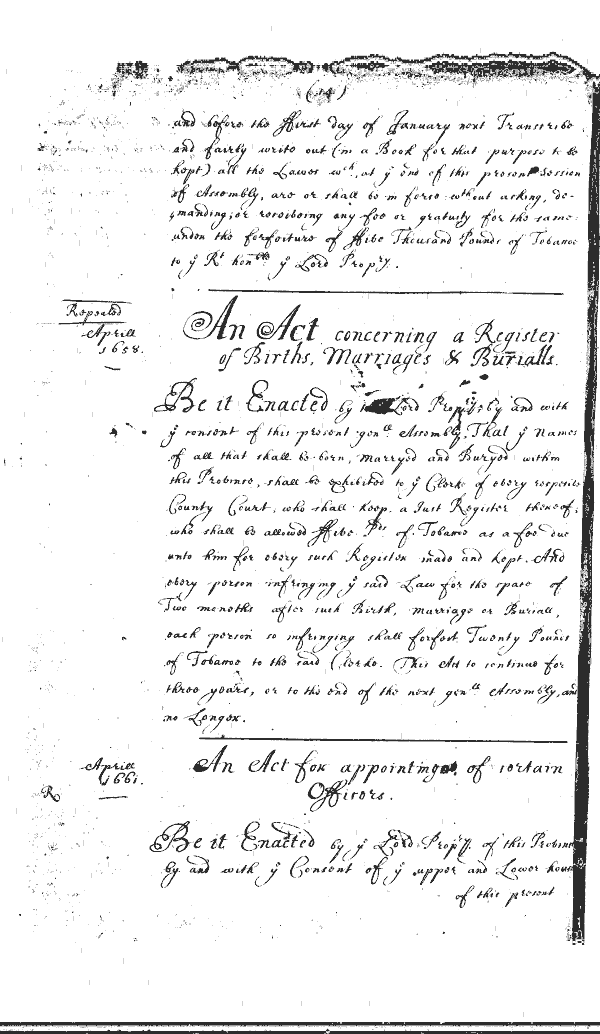 (14)
and before the ffirst day of January next Transcribe
and fairly write out (in a Book for that purpose to be
kept) all the Lawes wch, at ye end of this present Session
of Assembly, are or shall be in force wthout asking, de-
manding, or receiveing any fee or gratuity for the same
under the forfeiture of ffive Thousand Pounds of Tobacco
to ye Rt honble ye Lord Propry.
Repealed
Aprill
1658.
An Act concerning a Register
of Births, Marriages & Burialls.
Be it Enacted by Lord Propry by and with
ye consent of this present genll Assembly, That ye Names
of all that shall be born, marryed and Buryed within
this Province, shall be exhibited to ye Clerke of every respective
County Court, who shall keep a Just Register thereof;
who shall be allowed ffive Pds of Tobacco as a fee due
unto him for every such Register made and kept. And
every person infringing ye said Law for the space of
Two moneths after such Birth, marriage or Buriall,
each person so infringing shall forfeit Twenty Pounds
of Tobacco to the said Clerke. This Act to continue for
three years, or to the end of the next genll Assembly, and
no Longer.
Aprill
1661.
R
An Act for appointmt of certain
Officers.
Be it Enacted by ye Lord Propry of this Province
by and with ye Consent of ye upper and Lower house
of this present